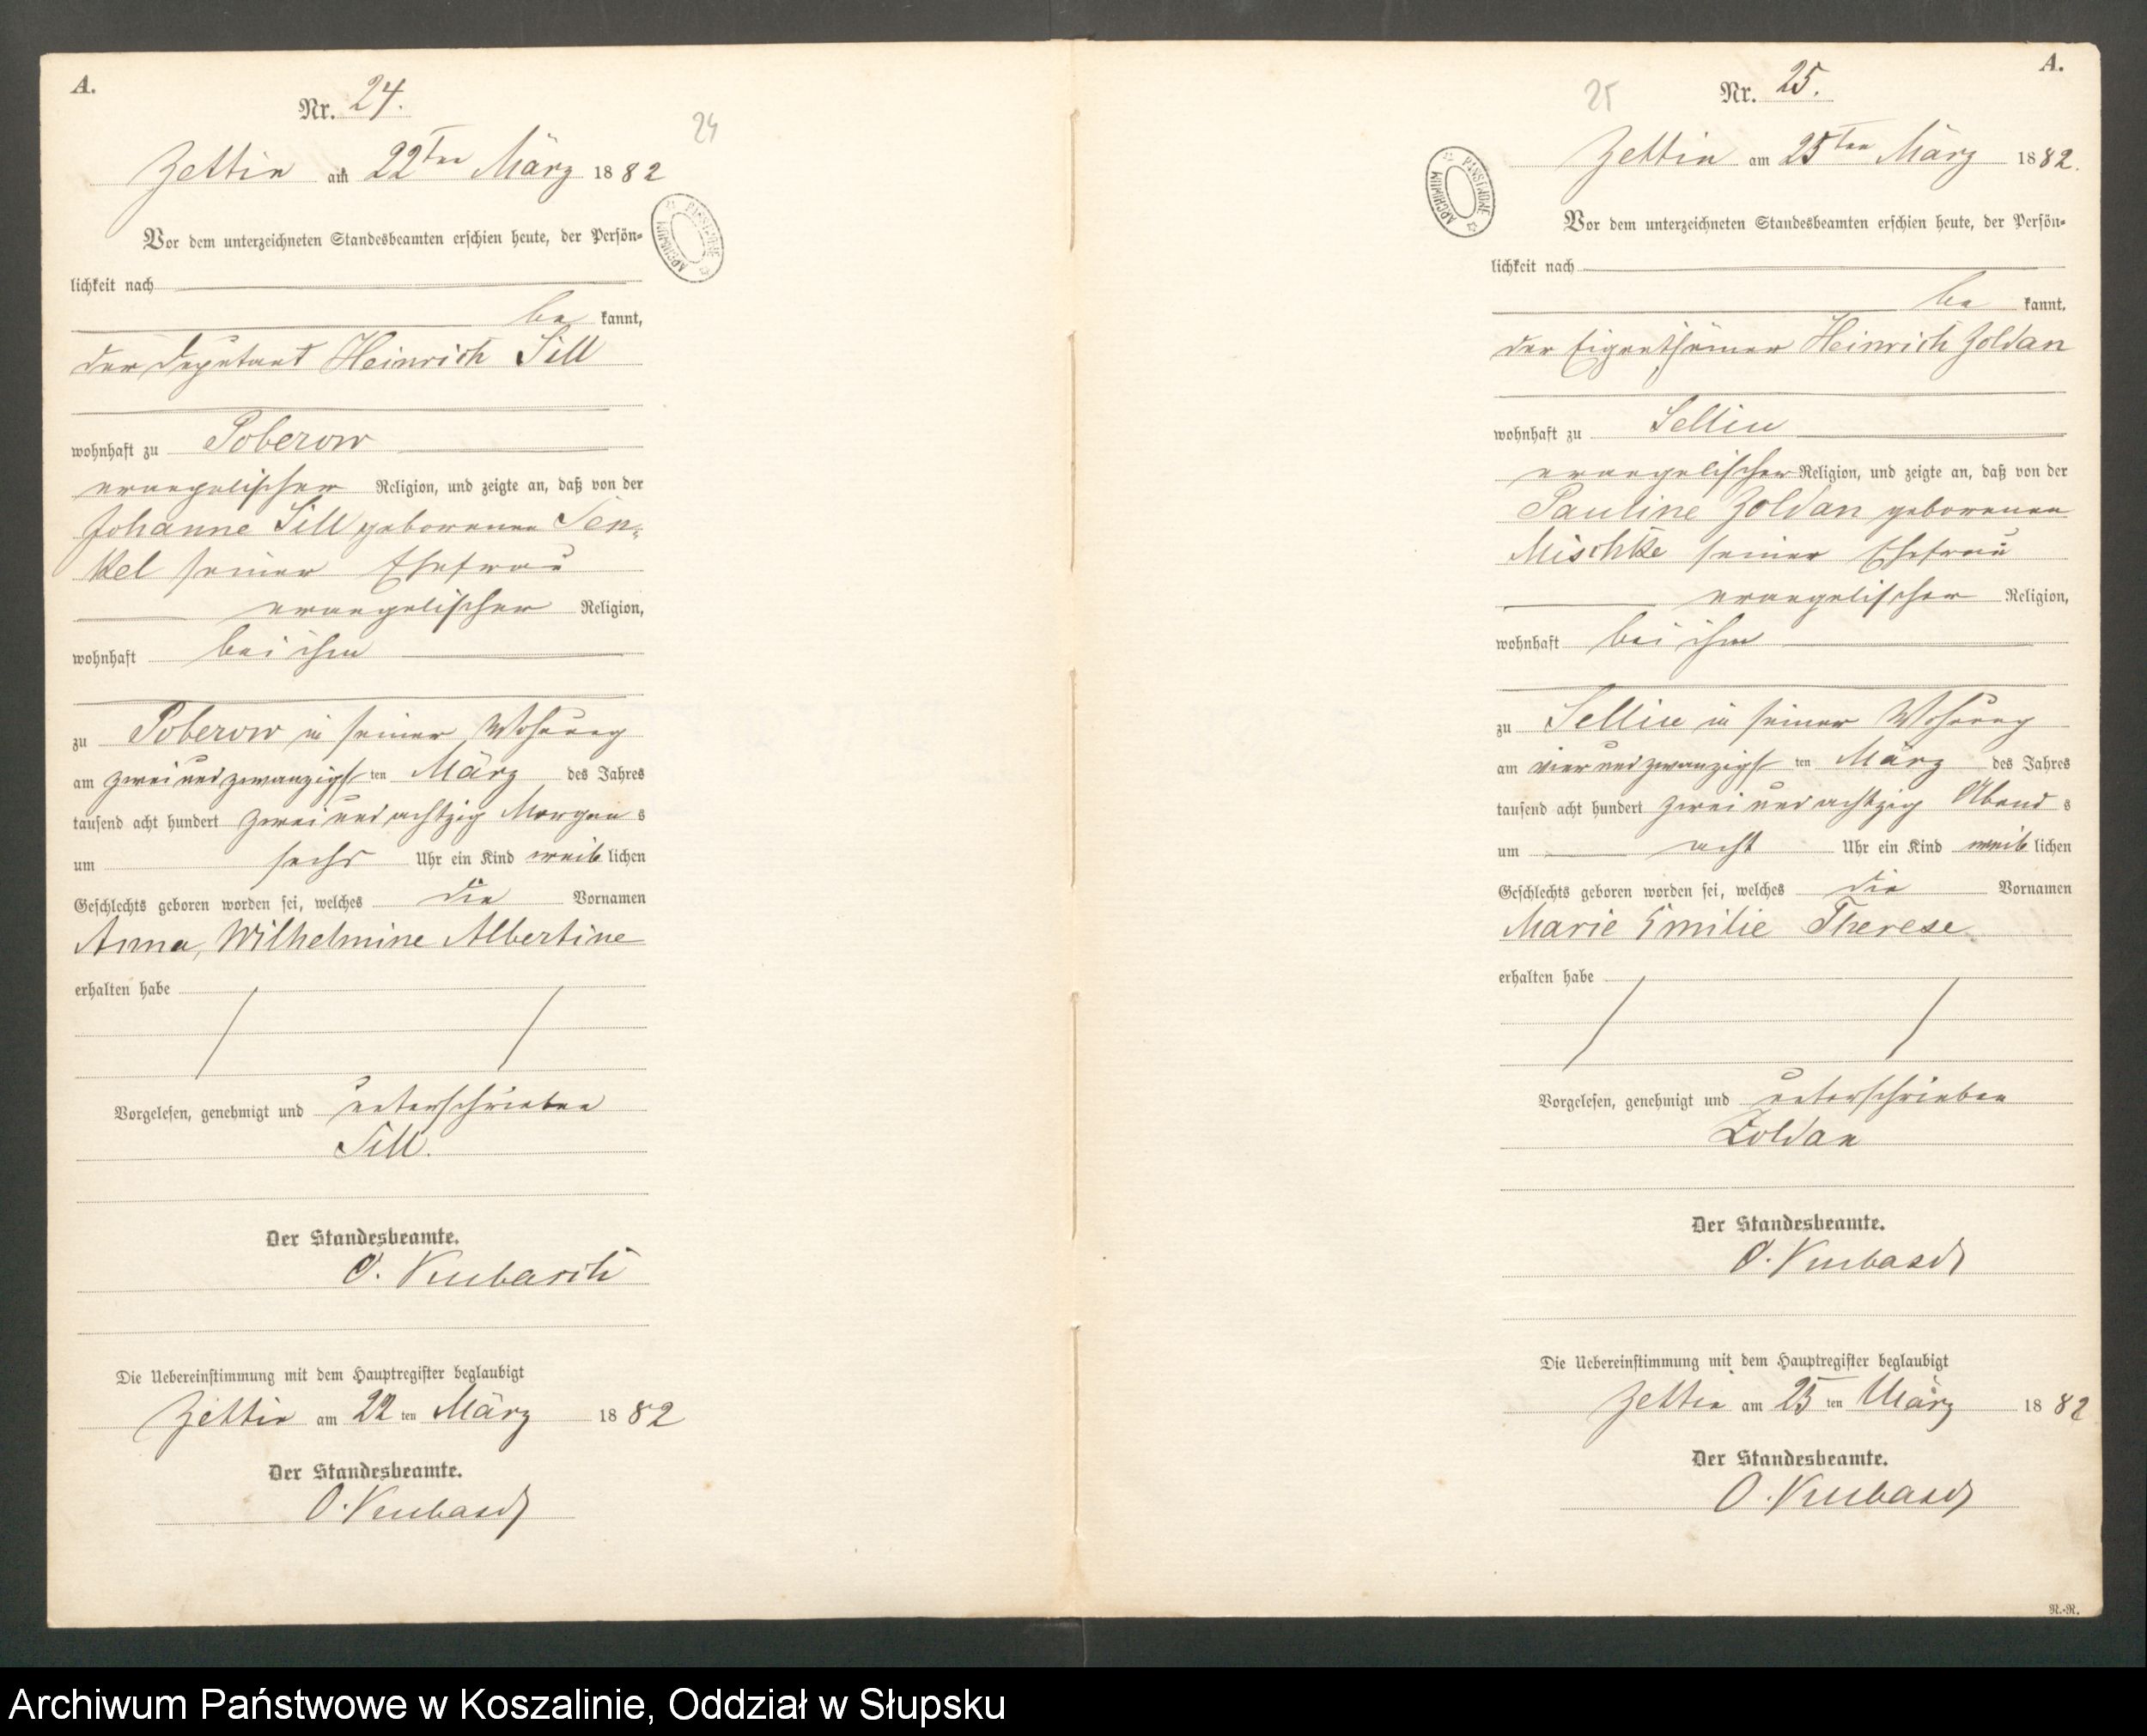 A.
Nr. 24.
24
Zettin am 22ten März 1882
Vor dem unterzeichneten Standesbeamten erschien heute, der Persön-
lichkeit nach
be kannt,
der Deputant Heinrich Sill
wohnhaft zu Poberow
evangelischer Religion, und zeigte an, daß von der
Johanne Sill geborenen
seiner Ehefrau
evangelischer Religion,
wohnhaft bei ihm
zu Poberow in seiner Wohnung
am zwei und zwanzigsten März des Jahres
tausend acht hundert zwei und achtzig Morgens
um sechs Uhr ein Kind weiblichen
Geschlechts geboren worden sei, welches die Vornamen
Anna, Wilhelmine Albertine
erhalten habe
Vorgelesen, genehmigt und unterschrieben
Sill.
Der Standesbeamte.
O. Kubasch
Die Uebereinstimmung mit dem Hauptregister beglaubigt
Zettin am 22 ten März 1882
Der Standesbeamte.
O. Kubasch
ARCHIWUM PAŃSTWOWE
A.
Nr. 25.
25
Zettin am 25ten März 1882.
Vor dem unterzeichneten Standesbeamten erschien heute, der Persön-
lichkeit nach
be kannt,
der Eigenthümer Heinrich Zoldan
wohnhaft zu Sellin
evangelischer Religion, und zeigte an, daß von der
Pauline Zoldan geborenen
Mischke seiner Ehefrau
evangelischer Religion,
wohnhaft bei ihm
zu Sellin in seiner Wohnung
am vier und zwanzigsten März des Jahres
tausend acht hundert zwei und achtzig Abends
um acht Uhr ein Kind weiblichen
Geschlechts geboren worden sei, welches die Vornamen
Marie Emilie Therese
erhalten habe
Vorgelesen, genehmigt und unterschrieben
Zoldan
Der Standesbeamte.
O. Kubasch
Die Uebereinstimmung mit dem Hauptregister beglaubigt
Zettin am 25 ten März 1882
Der Standesbeamte.
O. Kubasch
ARCHIWUM PAŃSTWOWE
R.-R.
Archiwum Państwowe w Koszalinie, Oddział w Słupsku